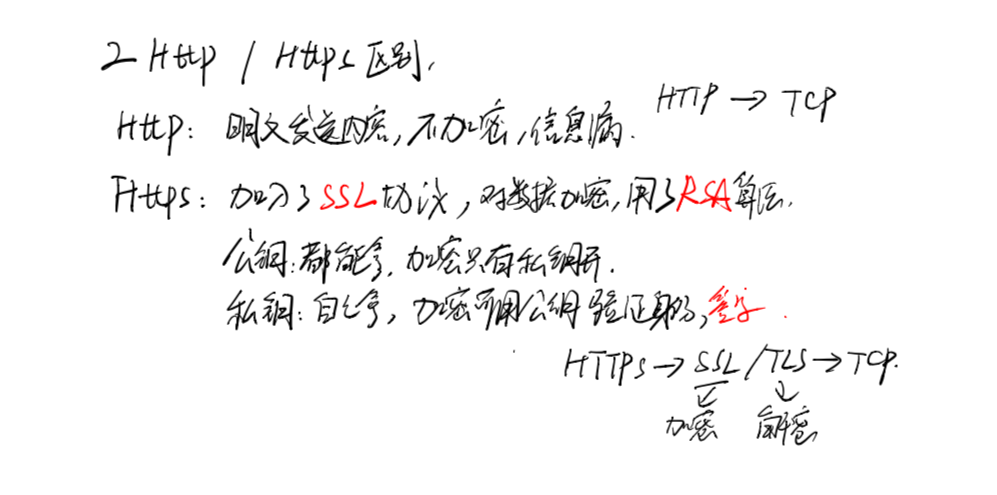 2 Http / Https 区别.
HTTP → TCP
Http: 明文发送内容, 不加密, 信息漏.
Https: 加入了SSL协议, 对数据加密, 用了RSA算法.
公钥: 都能拿, 加密只有私钥开.
私钥: 自己拿, 加密可用公钥验证身份, 签字.
HTTPs → SSL / TLS → TCP.
加密 解密